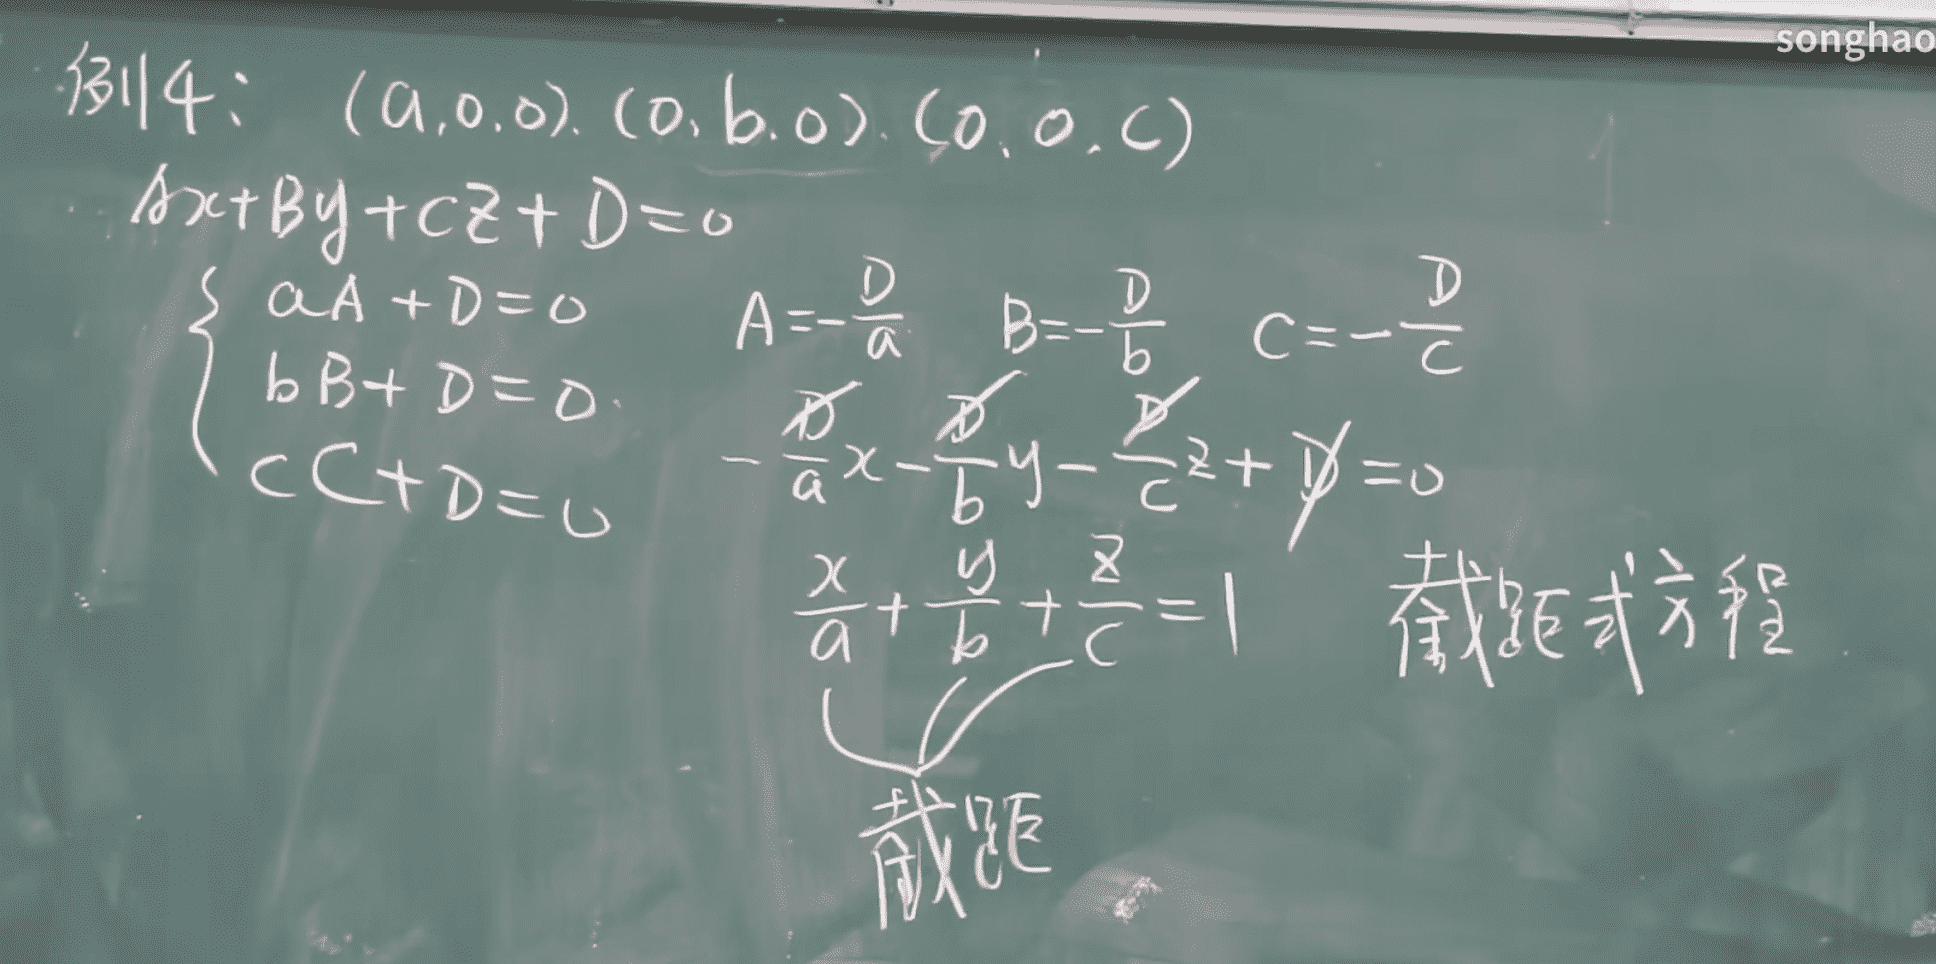 songhao
例4: (a,0.0). (0. b.0). (0. 0. c)
Ax+By+Cz+D=0
aA+D=0
bB+D=0
cC+D=0
A=-D/a B=-D/b C=-D/c
-D/a x-D/b y-D/c z+D=0
x/a+y/b+z/c=1 截距式方程
截距